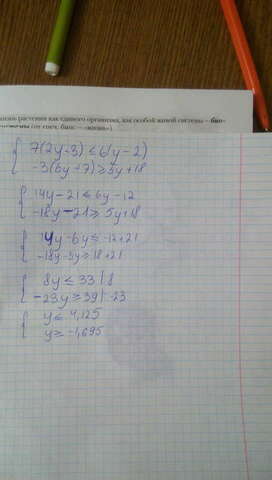 жизни растения как единого организма, как особой живой системы – био-
(от греч. биос – «жизнь»)
7(2y-3) ≤ 6(y-2)
-3(6y+7) ≥ 5y+18
14y-21 ≤ 6y-12
-18y-21 ≥ 5y+18
14y-6y ≤ -12+21
-18y-5y ≥ 18+21
8y ≤ 33 |:8
-23y ≥ 39 |:-23
y ≤ 4,125
y ≥ -1,695